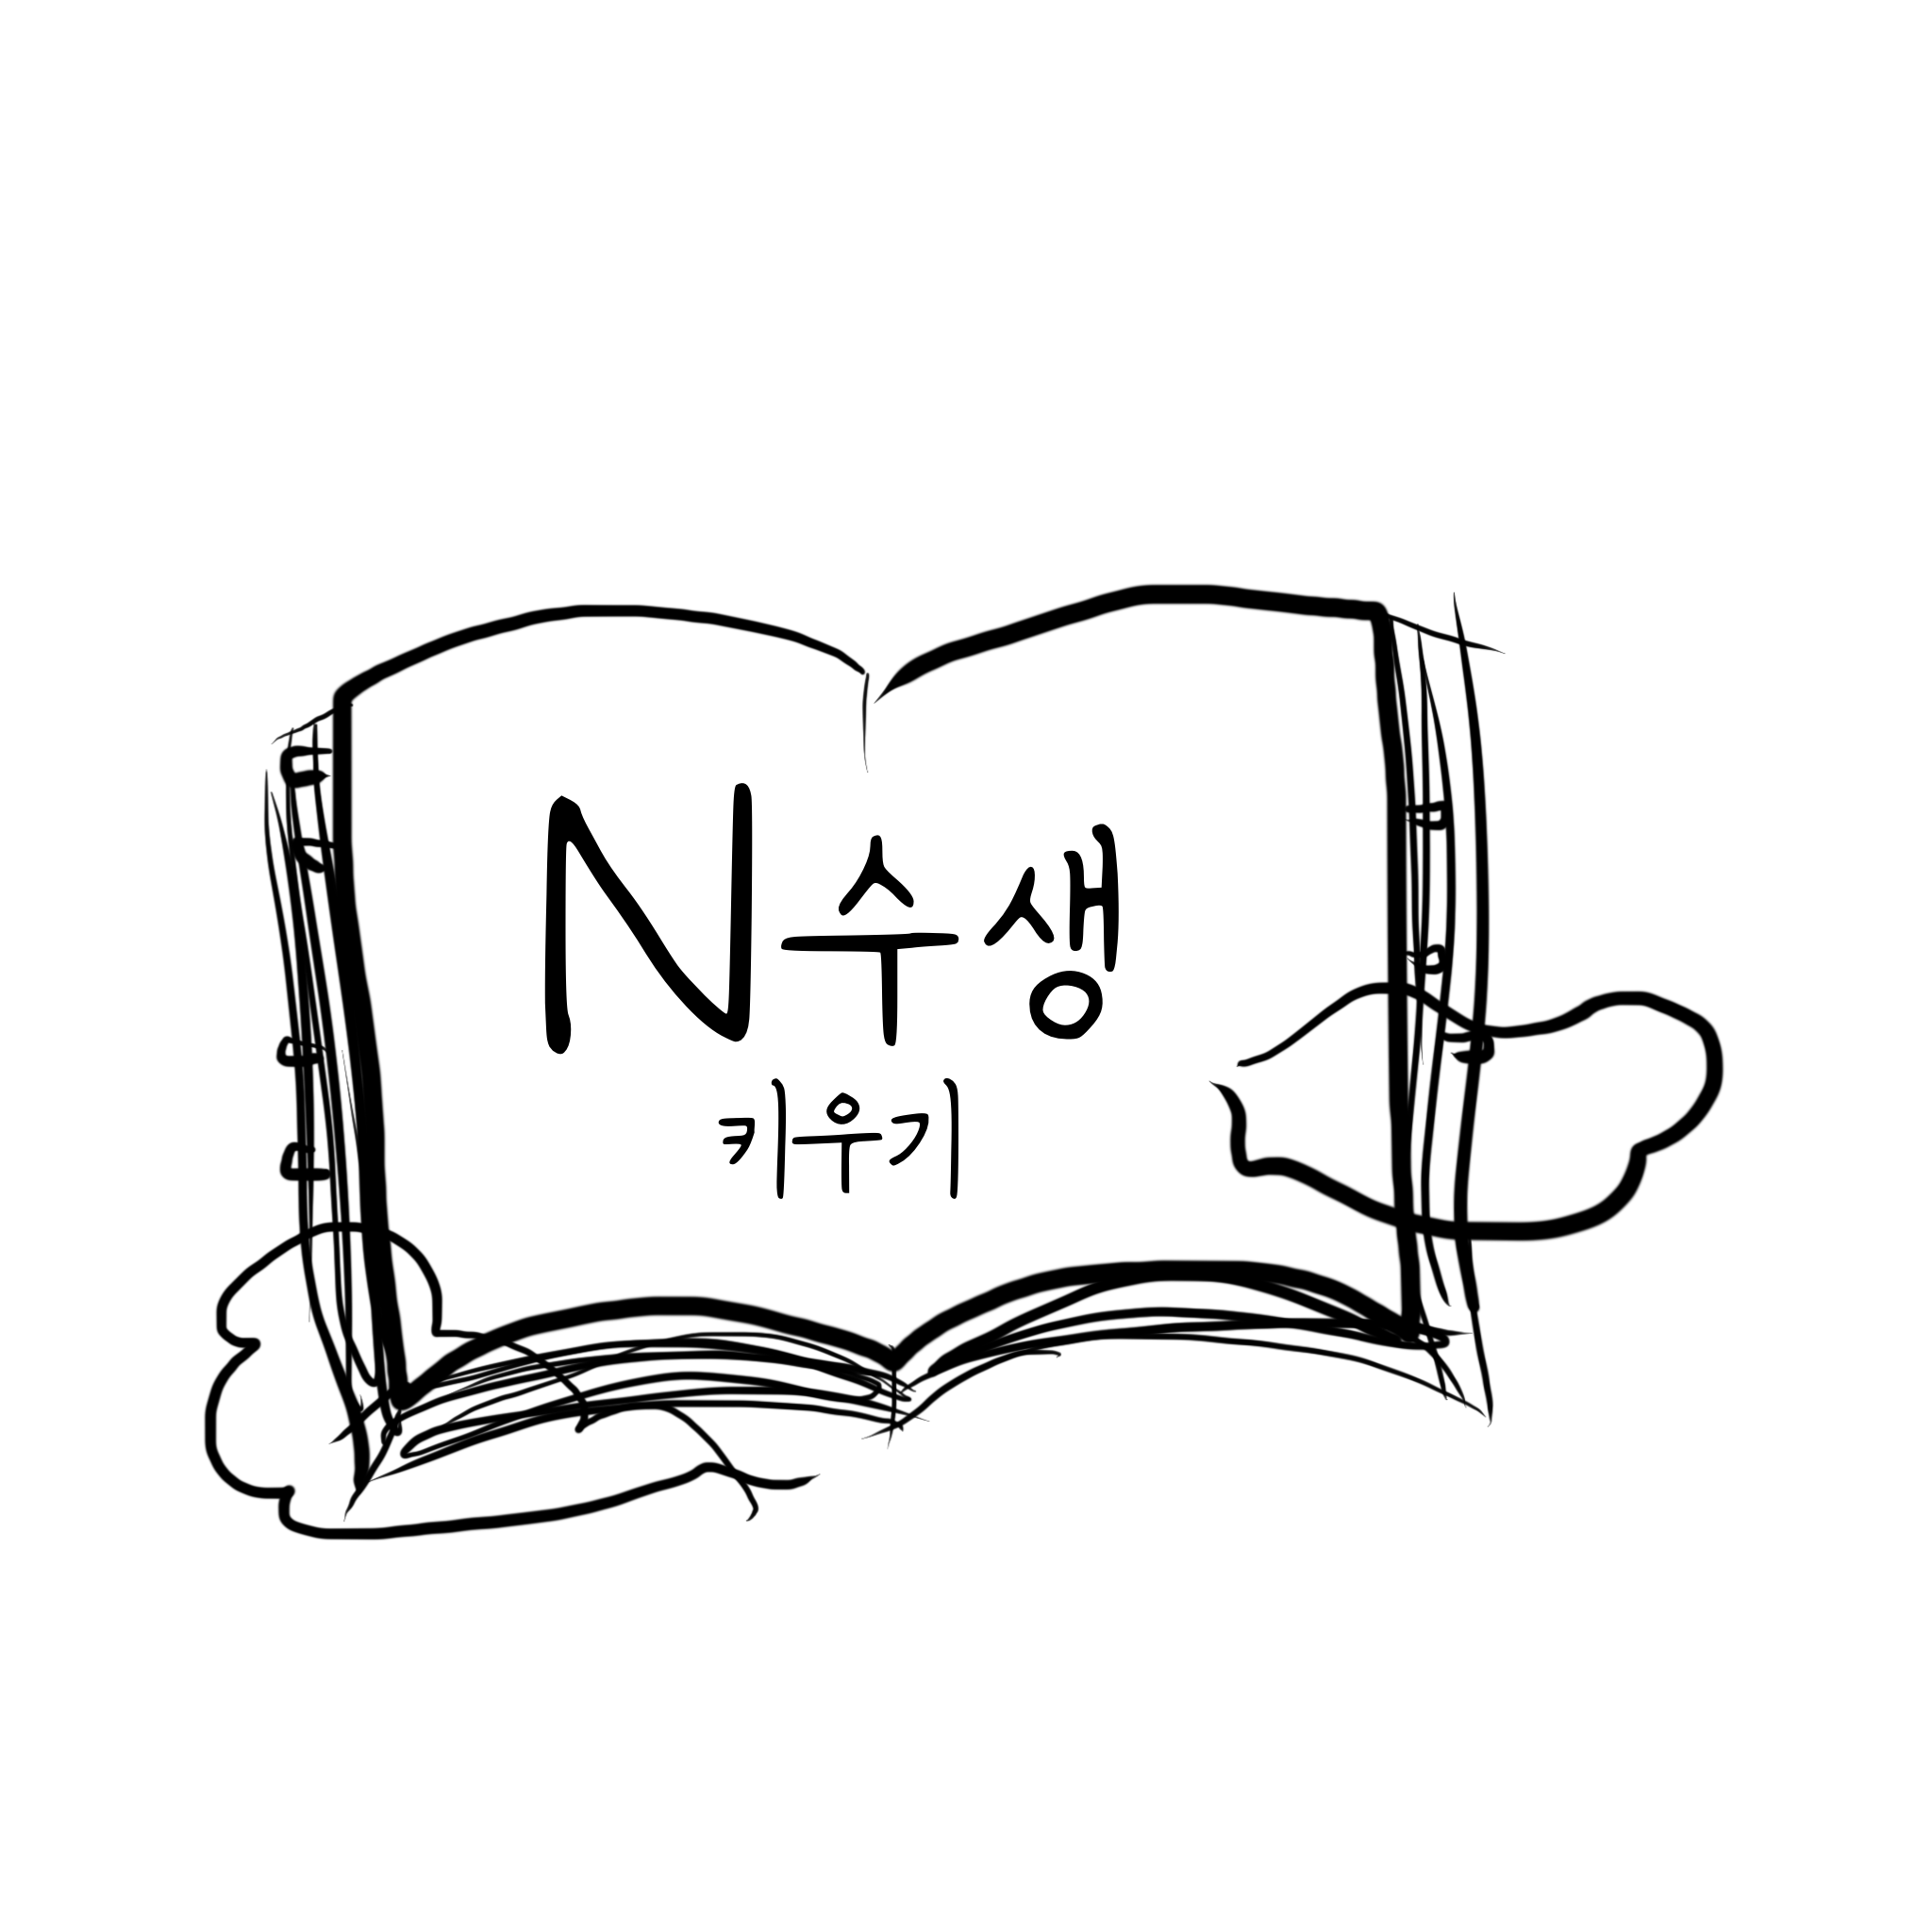 N수생
키우기